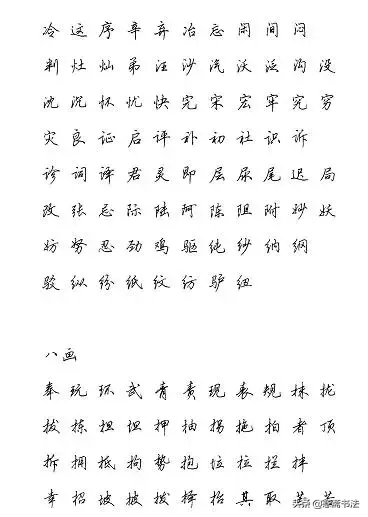 冷 这 序 辛 弃 冶 忘 闲 间 闷
判 灶 灿 弟 汪 沙 汽 沃 泛 沟 没
沈 沉 怀 忧 快 完 宋 宏 牢 究 穷
灾 良 证 启 评 补 初 社 识 诉
诊 词 译 君 灵 即 层 尿 尾 迟 局
改 张 忌 际 陆 阿 陈 阻 附 妙 妖
妨 努 忍 劲 鸡 驱 纯 纱 纳 纲
驳 纵 纷 纸 纹 纺 驴 纽
八画
奉 玩 环 武 青 责 现 表 规 抹 拢
拔 拣 担 坦 押 抽 拐 拖 拍 者 顶
拆 拥 抵 拘 势 抱 垃 拉 拦 拌
幸 招 坡 披 拨 择 抬 其 取 苦
头条 @墨斋书法